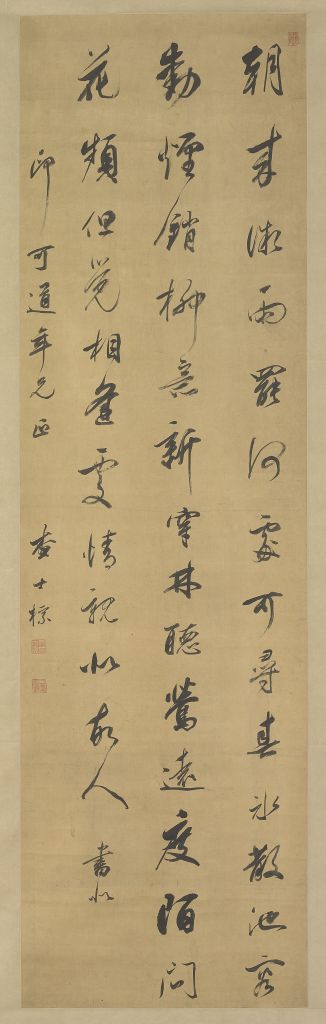 朝來微雨罷何處可尋春氷散池容
動煙銷柳意新穿林聽鶯遠度陌問
花頻但覺相逢處情親似故人 書似
印可道年兄正 查士標